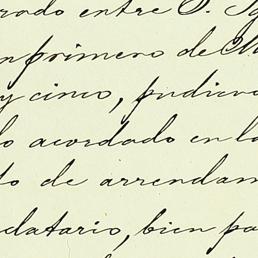 rado entre D. Ig
n primero de M
y cinco, pudiero
lo acordado en la
to de arrendam
datario, bien pa